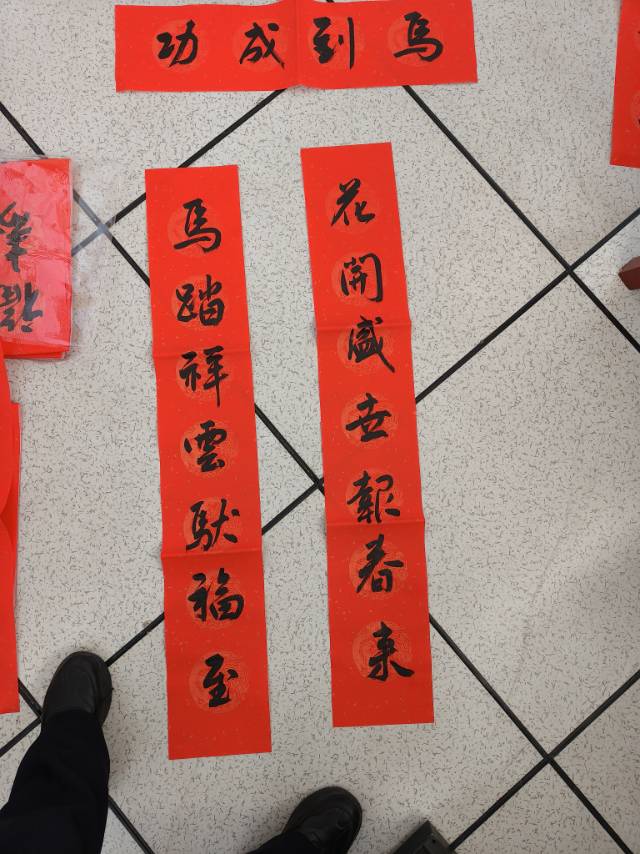 馬到成功
花開盛世報春來
馬踏祥雲馱福至